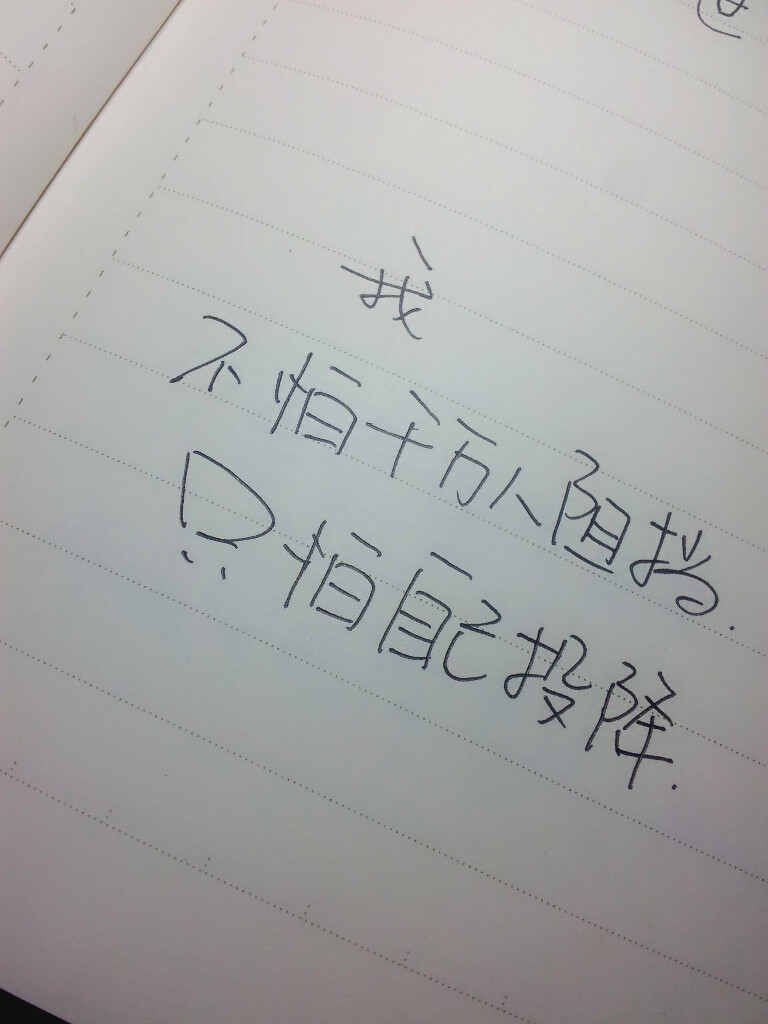 我
不怕千万人阻挡.
只怕自己投降.